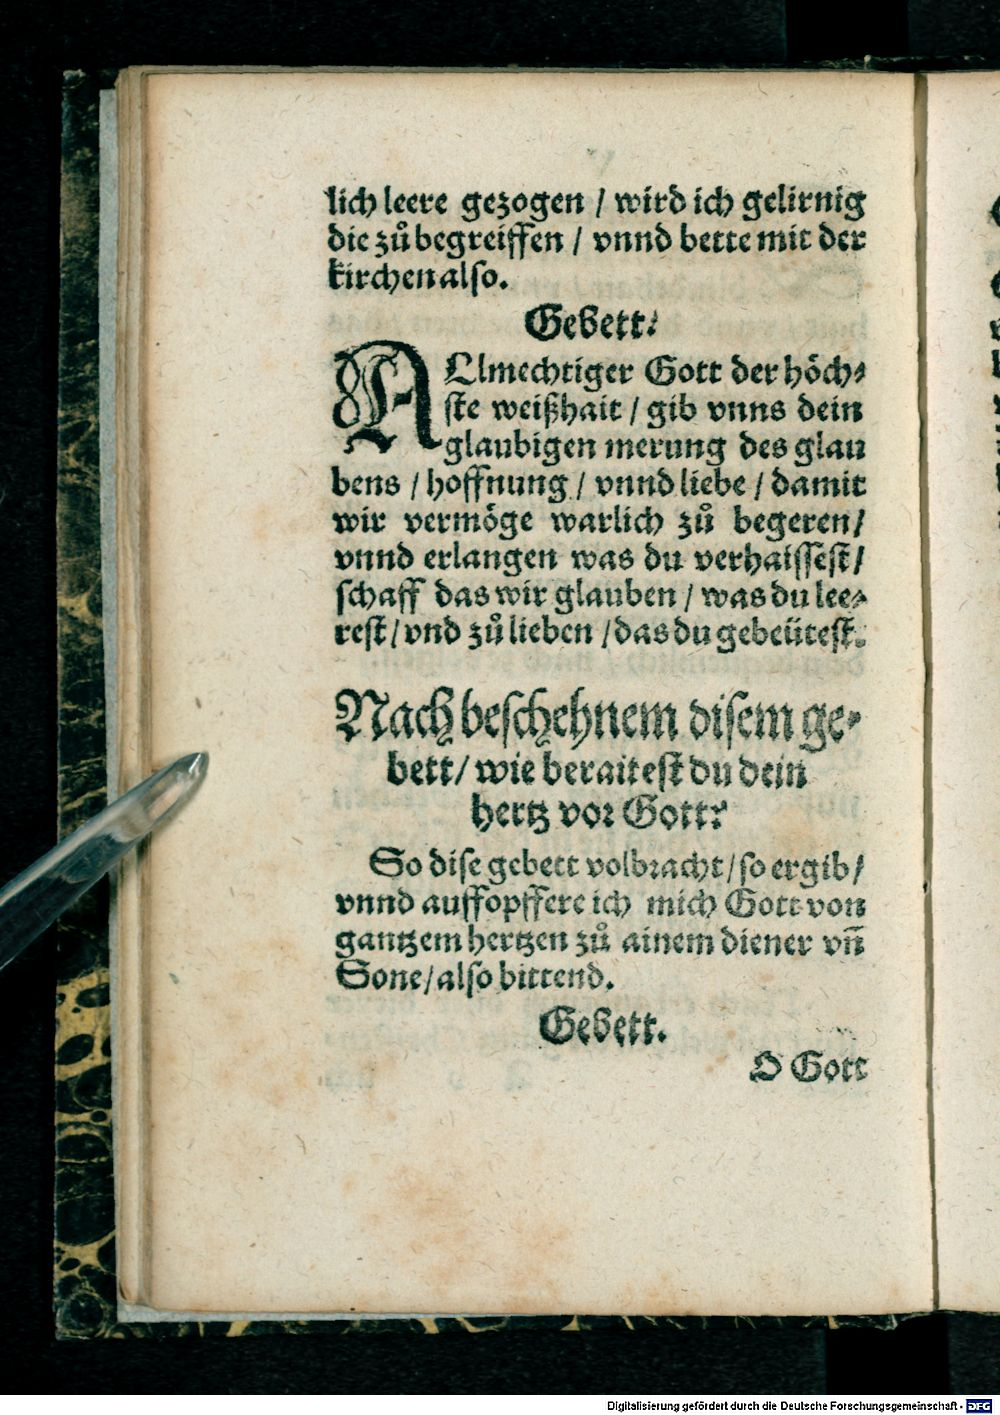 lich leere gezogen / wird ich gelirnig
die zů begreiffen / vnnd bette mit der
kirchen also.
Gebett:
ALlmechtiger Gott der höch⸗
ste weißhait / gib vnns dein
glaubigen merung des glau
bens / hoffnung / vnnd liebe / damit
wir vermöge warlich zů begeren /
vnnd erlangen was du verhaissest /
schaff das wir glauben / was du lee⸗
rest / vnd zů lieben / das du gebeütest.
Nach beschehnem disem ge⸗
bett / wie beraitest du dein
hertz vor Gott?
So dise gebett volbracht / so ergib /
vnnd auffopffere ich mich Gott von
gantzem hertzen zů ainem diener vñ
Sone / also bittend.
Gebett.
O Gott
Digitalisierung gefördert durch die Deutsche Forschungsgemeinschaft - DFG